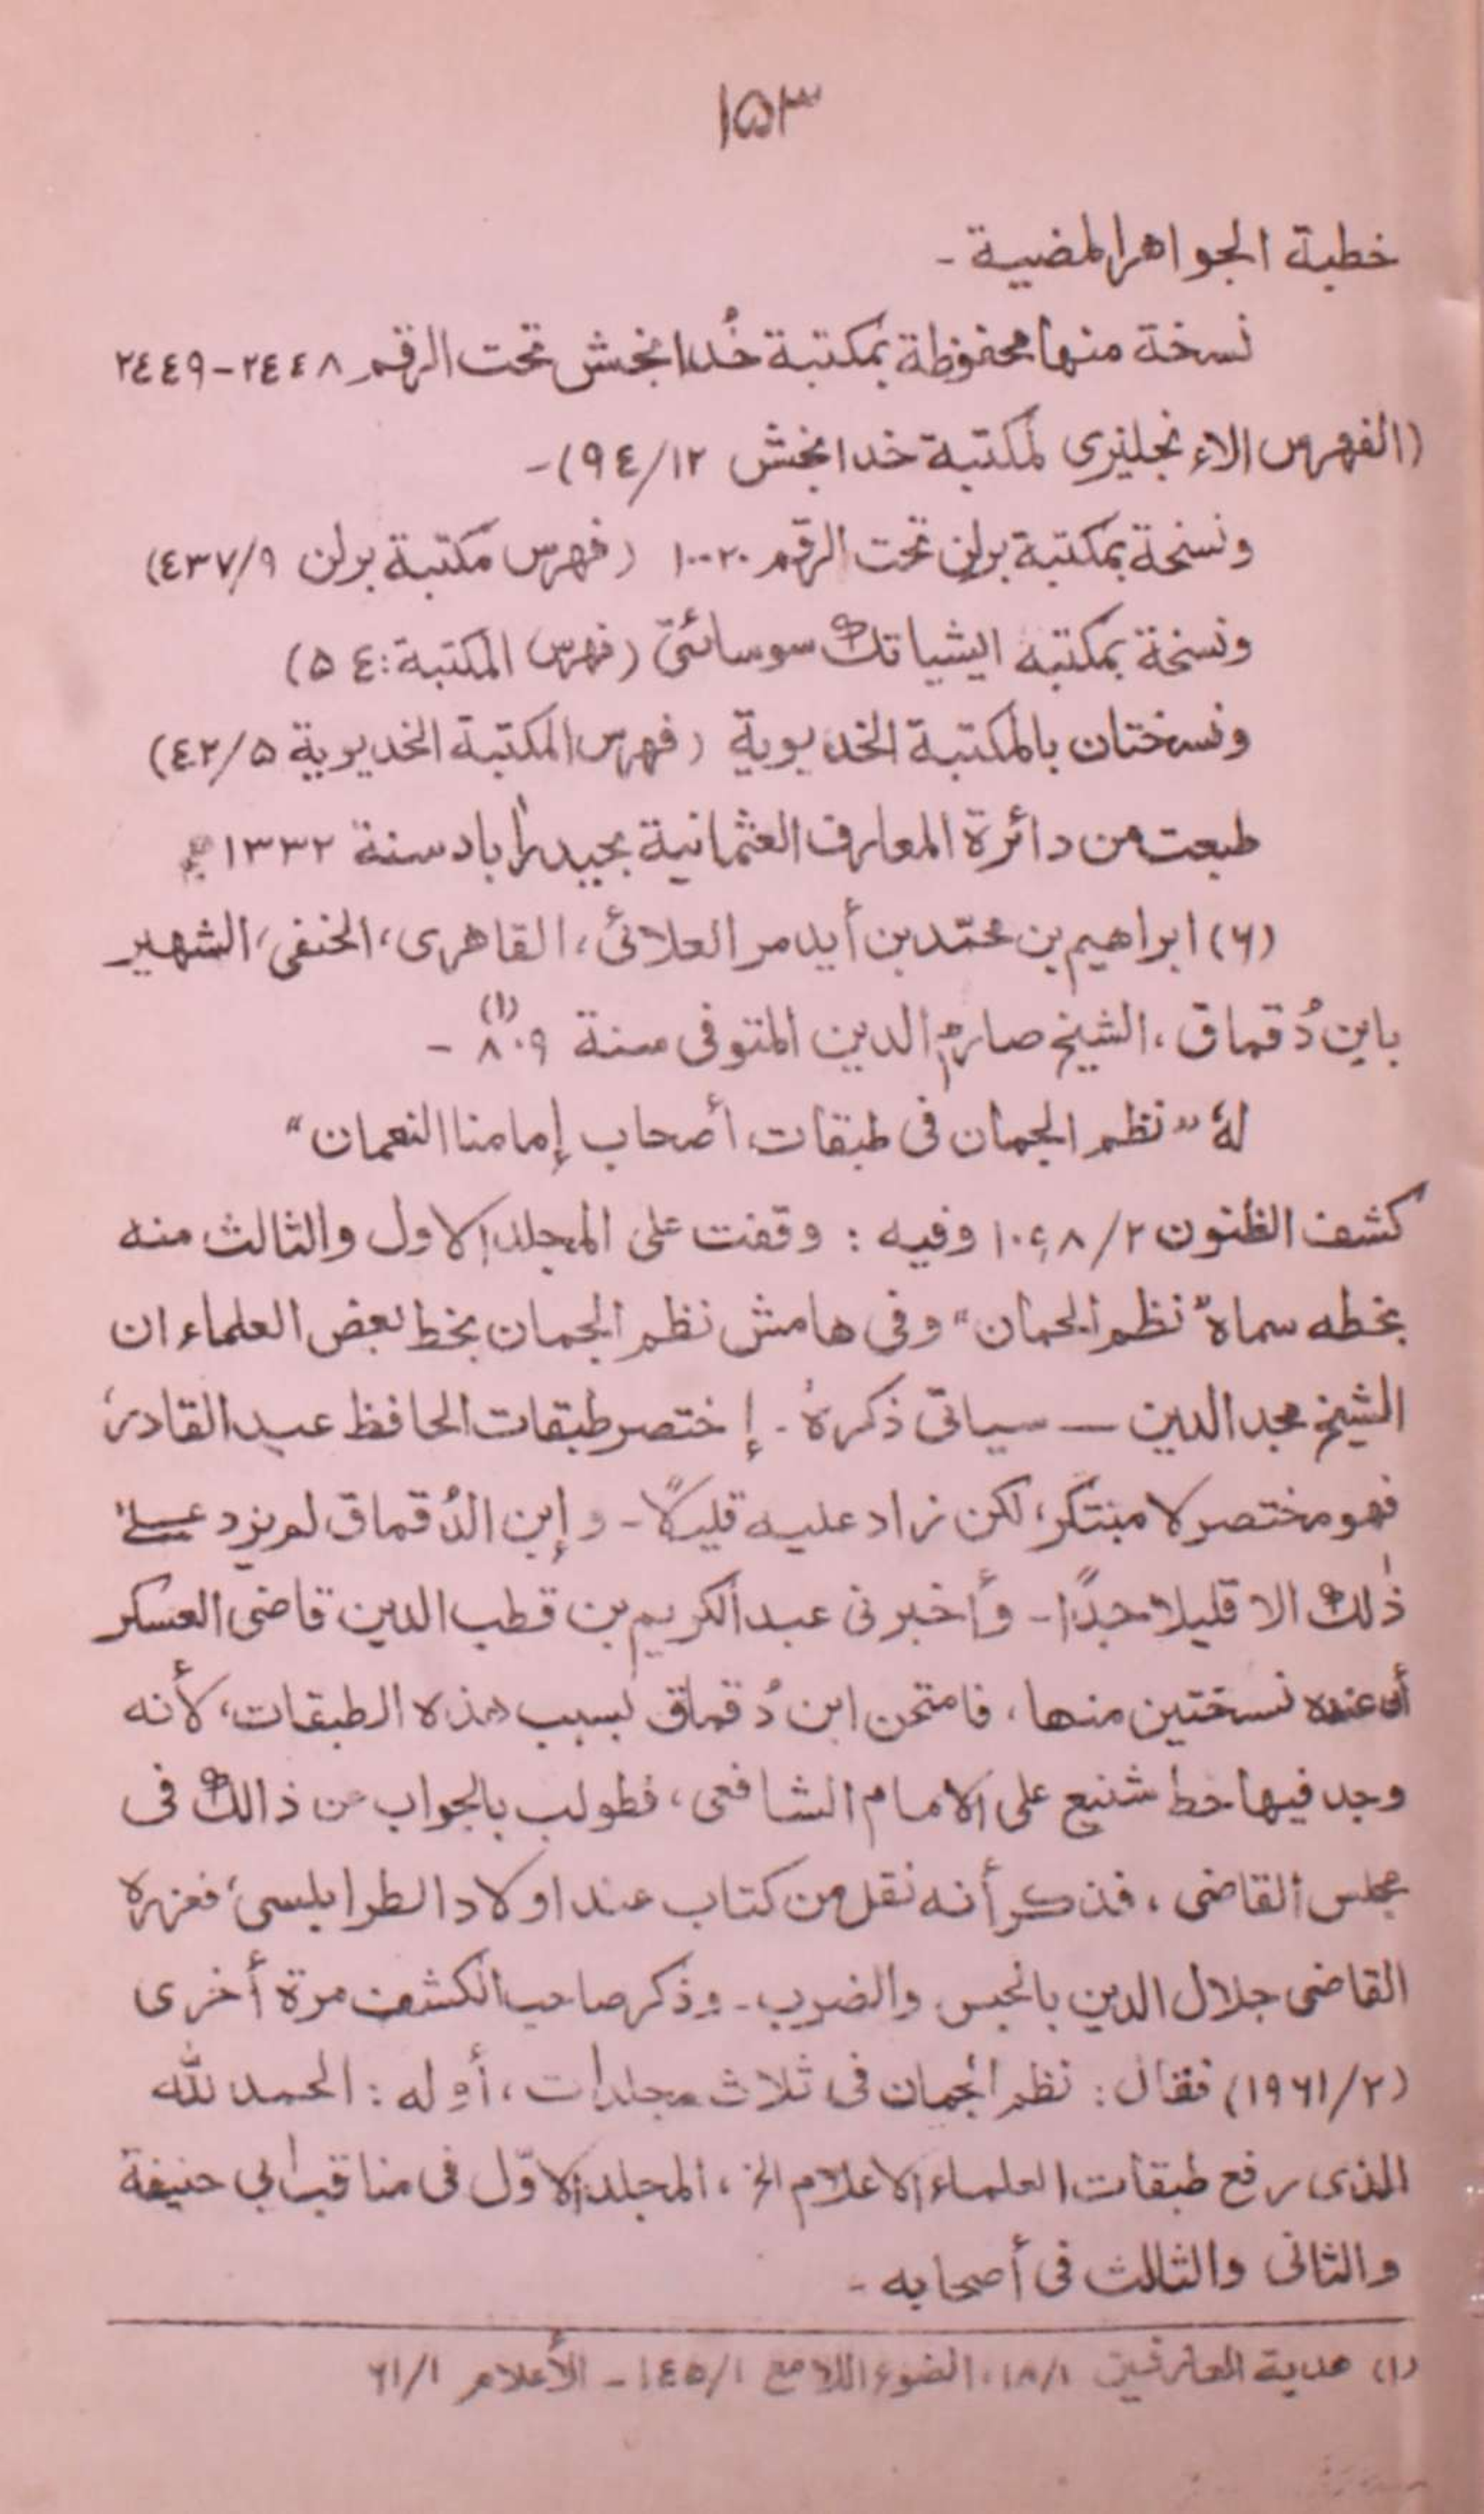 ١٥٣
خطبة الجواهر المضيية -
نسخة منها محفوظة بمكتبة خُدا بخش تحت الرقم ٢٤٤٨-٢٤٤٩
(الفهرس الاءنجليزى لمكتبة خدا بخش ٩٤/١٢)-
ونسخة بمكتبة برلن تحت الرقم ١٠٠٢٠ (فهرس مكتبة برلن ٤٣٧/٩)
ونسخة بمكتبه ايشياتك سوسائتى (فهرس المكتبة: ٥٤)
ونسختان بالمكتبة الخديوية (فهرس المكتبة الخديوية ٤٢/٥)
طبعت من دائرة المعارف العثمانية بحيدراٰباد سنة ١٣٣٢ھ
(٦) ابراهيم بن محمّد بن أيدمر العلائى، القاهرى، الحنفى، الشهير
بابن دُقماق، الشيخ صارم الدين المتوفى سنة ٨٠٩ (١) -
لهٗ "نظم الجمان فى طبقات أصحاب إمامنا النعمان"
كشف الظنون ١٠٩٨/٢ وفيه : وقفت على المجلد الاول والثالث منه
بخطه سماه "نظم الجمان" وفى هامش نظم الجمان بخط بعض العلماء ان
الشيخ مجد الدين — سياتى ذكرهٗ - إختصر طبقات الحافظ عبد القادر،
فهو مختصر لا مبتكر، لكن زاد عليه قليلاً - و إبن الدُقماق لم يزد علىٰ
ذٰلك الا قليلا جدًّا - وأخبرنى عبد الكريم بن قطب الدين قاضى العسكر
أن عنده نسختين منها، فامتحن ابن دُقماق بسبب هذه الطبقات، لأنه
وجد فيها حط شنيع على الامام الشافعى، فطولب بالجواب عن ذالك فى
مجلس القاضى، فذكر أنه نقل من كتاب عند اولاد الطرابلسى، فعزره
القاضى جلال الدين بالحبس والضرب - وذكر صاحب الكشف مرة أخرى
(١٩٦١/٢) فقال : نظم الجمان فى ثلاث مجلدات، أوله : الحمد للّٰه
الذى رفع طبقات العلماء الاعلام الخ، المجلد الاوّل فى مناقب ابي حنيفة
والثانى والثالث فى أصحابه -
(١) هدية العارفين ١٨/١، الضوء اللامع ١٤٥/١ - الأعلام ٦١/١